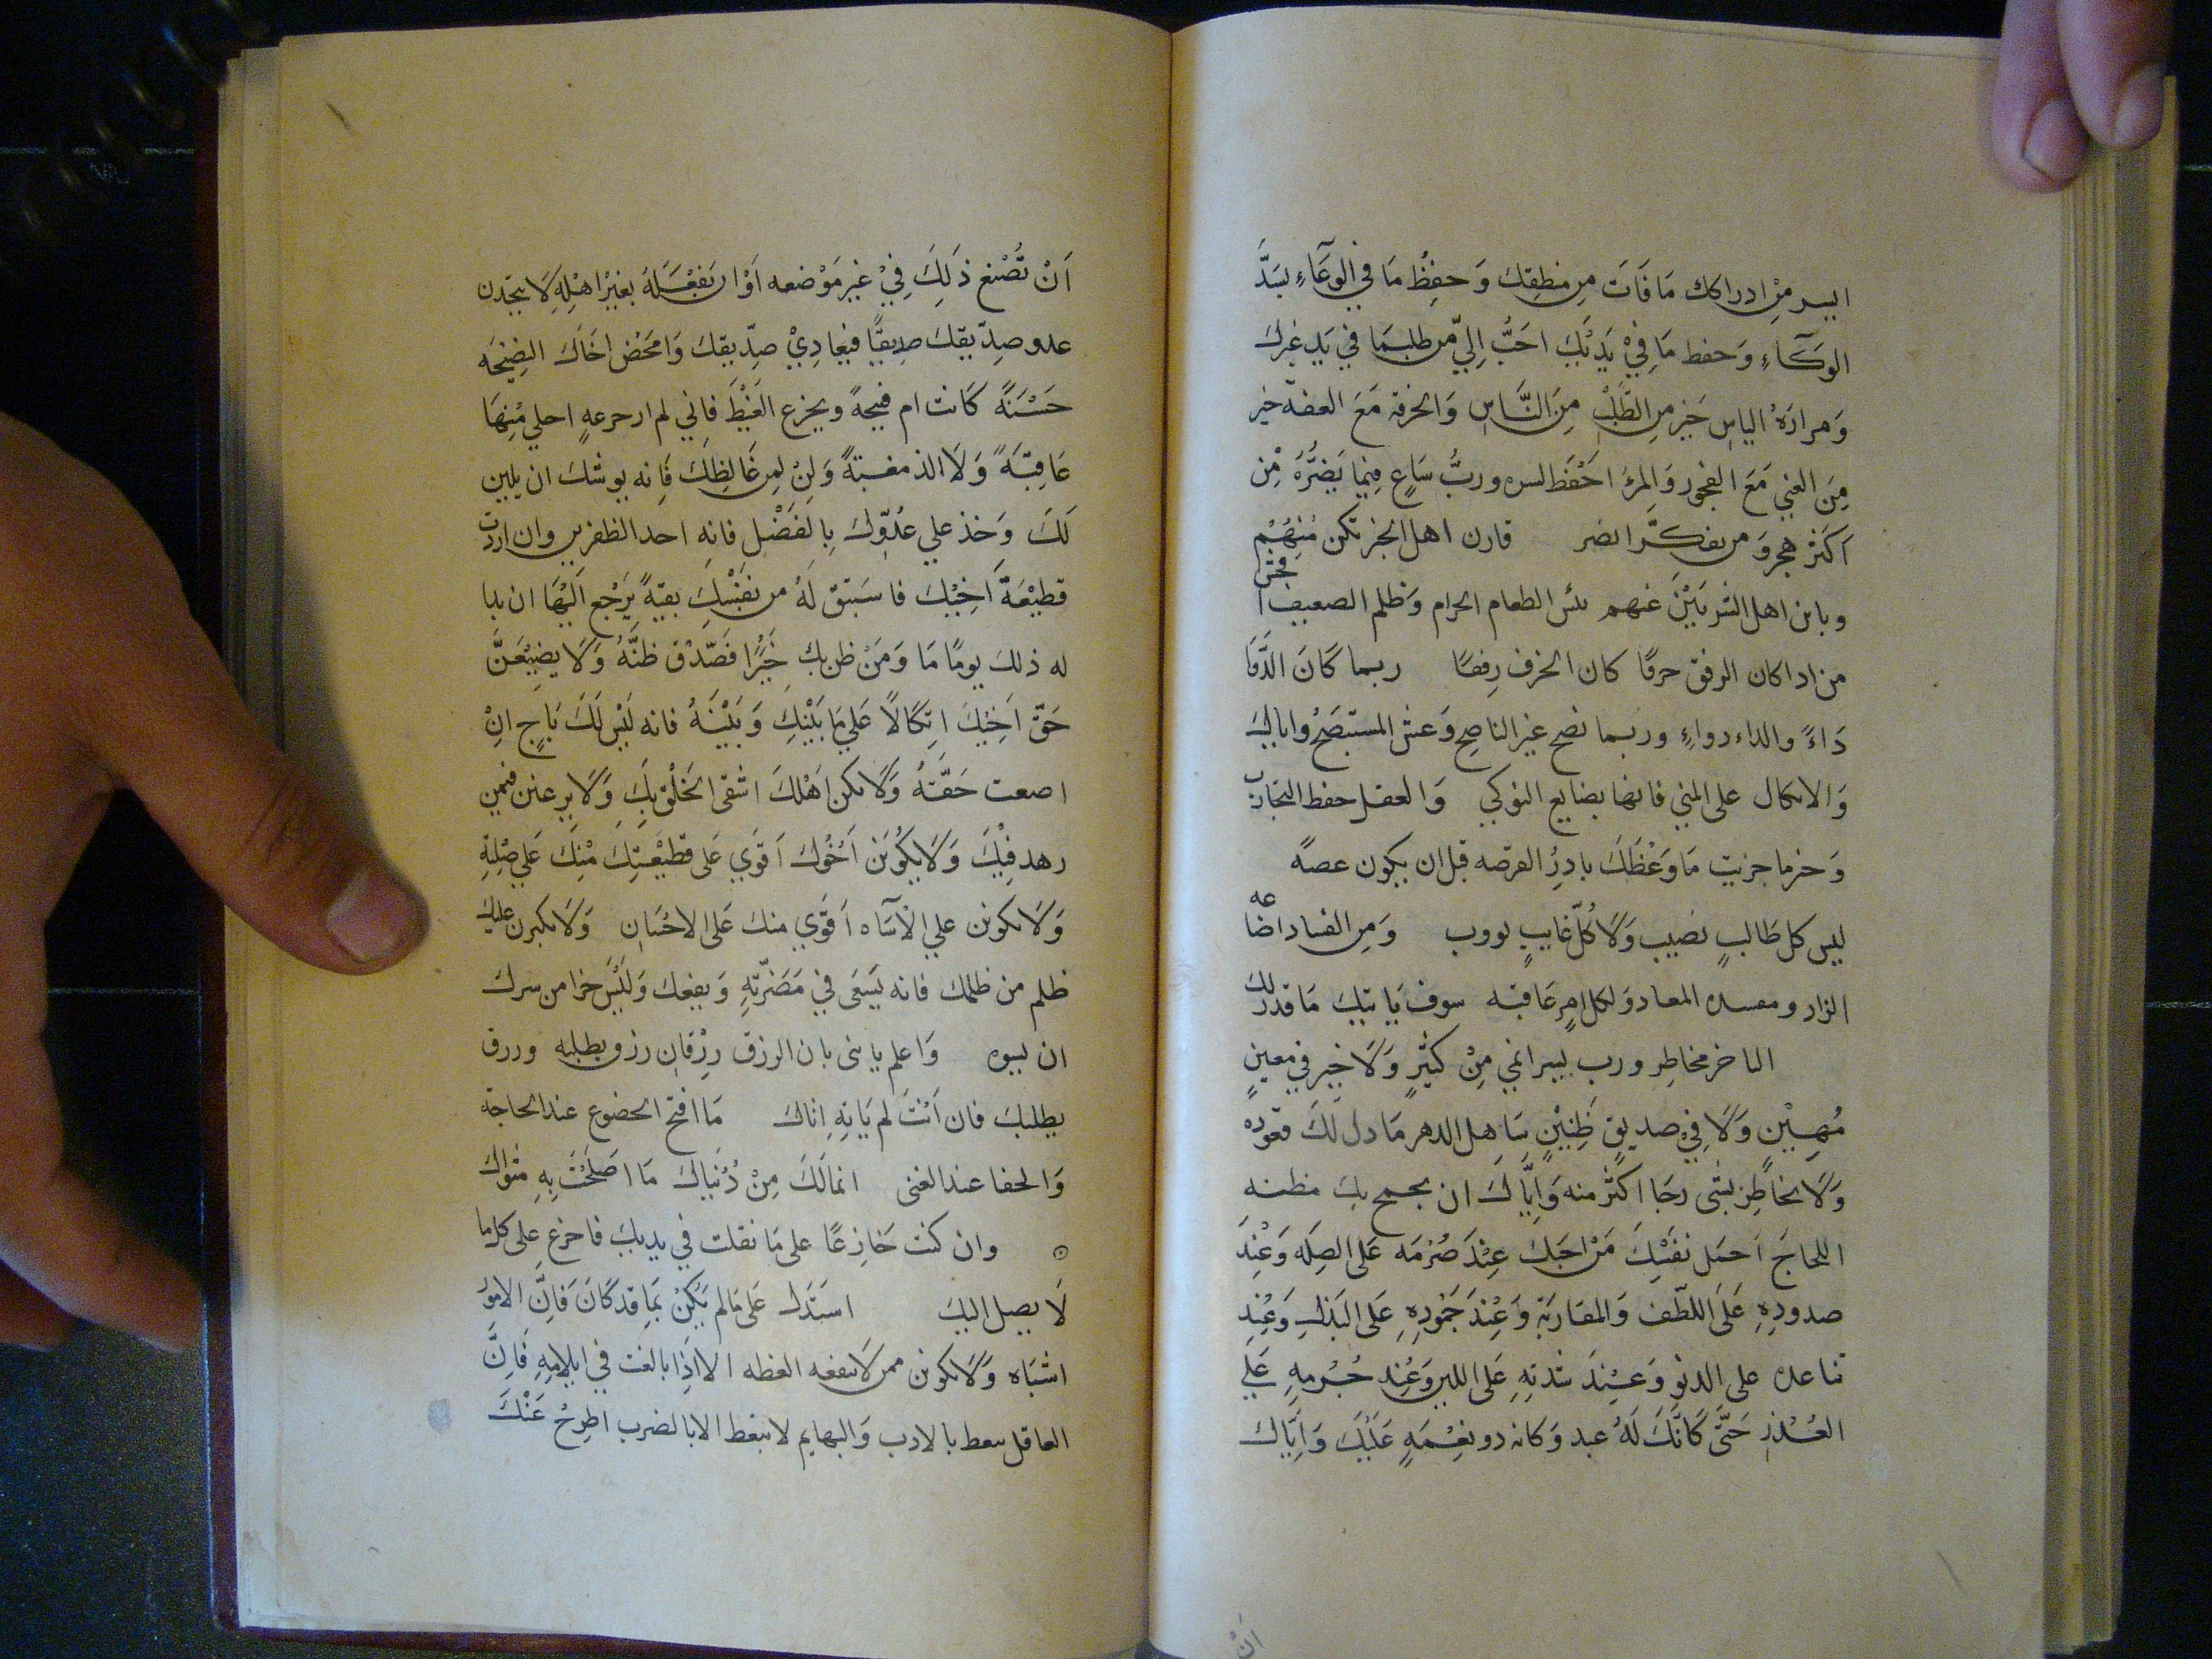 ايسر من ادراكك مَا فَاتَ مِن منطِقِك وَحفِظُ مَا في الوِعَآءِ بشَدِّ
الوِكَآءِ وَحفظ مَا فِيْ يَدَيْكَ احَبُّ اِليّ من طلب مَا في يَدِ غيرك
وَمرارَةُ الياسِ خَير من الطَّلَبْ مِنَ النَّاسِ وَالحرفة مَعَ العفة خير
مِنَ الغني مَعَ الفجور وَالمرءُ احْفَظ لسره وربُّ سَاعٍ فِيما يَضُرُّهُ مِن
اكثر هجر وَمن تفكّر ابصر قارن اهل الخير تكن مِنهُمْ
وباين اهل الشر تبِنْ عَنهم بئس الطعام الحرام وَظلم الضعيف افحش
من اذا كان الرفق خرقًا كان الخرف رِفقًا ربما كَانَ الدَّوَا
دَاءً والداء دواءٍ وربما نصح غير الناصح وَغش المستنصَحُ واياك
وَالاتكال على المني فانها بضايع النوكي وَالعقل حفظ التجارب
وَخير ما جربت مَا وَعَظَكَ بادِرُ الفرصة قبل ان يكون غصةً
ليس كل طَالبٍ نصيب وَلَا كُلّ غَايبٍ يووب وَمِن الفساد اضاعه
الزاد ومفسده المعاد وَلكل امرٍ عَاقبة سوف يَاتيك مَا قدر لك
التاجر مخاطِر ورب يسير انمي مِنْ كثيرٍ وَلَا خير في معينٍ
مُهِيْنٍ وَلَا فِيْ صديقٍ ظَنِيْنٍ سَاهِل الدهر مَا دل لَكَ قعوده
وَلَا تخاطِر بشى رجَا اكثر منه وَاِيَّاكَ ان تجمح بِكَ مظنه
اللجاجَ اَحمَل نفسَكَ مَن اخيك عِنْدَ صُرْمَه عَلى الصِلَه وَعِنْدَ
صدودِهِ عَلَى اللطَّفِ وَالمقَارَبَة وَعِنْدَ جُمودِهِ عَلى البَذلِ وَعِنْدَ
تباعده على الدنوِ وَعِنْدَ شدتِهِ عَلى اللين وَعِنْدَ جُرمِهِ عَلَى
العُذْرِ حَتَّى كَانَّكَ لَهُ عبد وَكانه ذو نِعْمَةٍ عَلَيْكَ وَاِيَّاك
ان
اَنْ تَصْنع ذَلِكَ فِيْ غيرِ مَوْضعه اَوْ ان تَفعَلهُ بِغَيْرِ اهْلِهِ لَا تتخِدن
عدو صدِّيقِكَ صدِيقًا فتعادِيْ صدِّيقك وَامحَض اخَاك النصِيحَه
حَسَنَةً كَانت ام قبيحةً وتجرع الغَيْظَ فَاني لم ار جرعهٍ احلي مِنهَا
عَاقِبَةً وَلَا الذ مغبةً وَلِنْ لِمن غَالظكَ فَانه يوشك ان يلين
لَكَ وَخذ علي عَدُوِّكَ بِالفَضْلِ فانه احد الظفرين وان اردت
قطيعَةَ اَخِيْكَ فاستبق لَهُ من نفسِكَ بقيةً يَرْجع اليْهَا ان بدا
له ذلكَ يومًا مَا وَمَنْ ظن بك خَيْرًا فصَدِّق ظنَّهُ وَلَا يضِيْعَنَّ
حَقّ اَخِيْكَ اتِكَالاً عَلي مَا بَيْنكَ وَبَيْنَهُ فانه لَيْسَ لَكَ بَاخٍ انْ
اضعت حَقَّهُ وَلَا يكن اَهْلكَ اشقى الخَلْقِ بِكَ وَلَا ترغبن فيمن
زهد فِيْكَ وَلَا يَكُوْنَن اَخُوْكَ اَقوَي عَلى قطيْعَتِكَ مْنِكَ عَلي صِلَتِهِ
وَلَا تكونن علي الاسَاه اَقوَي منك عَلى الاحْسَانِ وَلَا يكبرن عليك
ظلم من ظلمك فانه يَسْعَى في مَضَرَّتِهِ وَنفعِك وَلَيْسَ جزا من سرك
ان تسوه وَاعلم يا بنى بان الرزق رِزْقَانِ رزق تطلبه ورزق
يطلبك فان اَنْتَ لم تَاتِهِ اتاك مَا اقبح الخضوع عند الحاجة
وَالجفا عند الغنى انما لَكَ مِنْ دُنْيَاكَ مَا اصْلَحْتَ بِهِ مثواكَ
وان كنت جَازِعًا على مَا تفلت في يديك فاجزع على كل ما
لَا يصل اليك استَدل عَلى مَا لم يَكُنْ بِمَا قد كَانَ فَانَّ الامورُ
اشبَاه وَلَا تكونن ممن لَا تنفعه العظه الا اِذَا بالغت في ايلامِهِ فَاِنَّ
العاقل يتعظ بالادب وَالبهايم لا تتعظ الا بالضرب اطرِحْ عَنْكَ